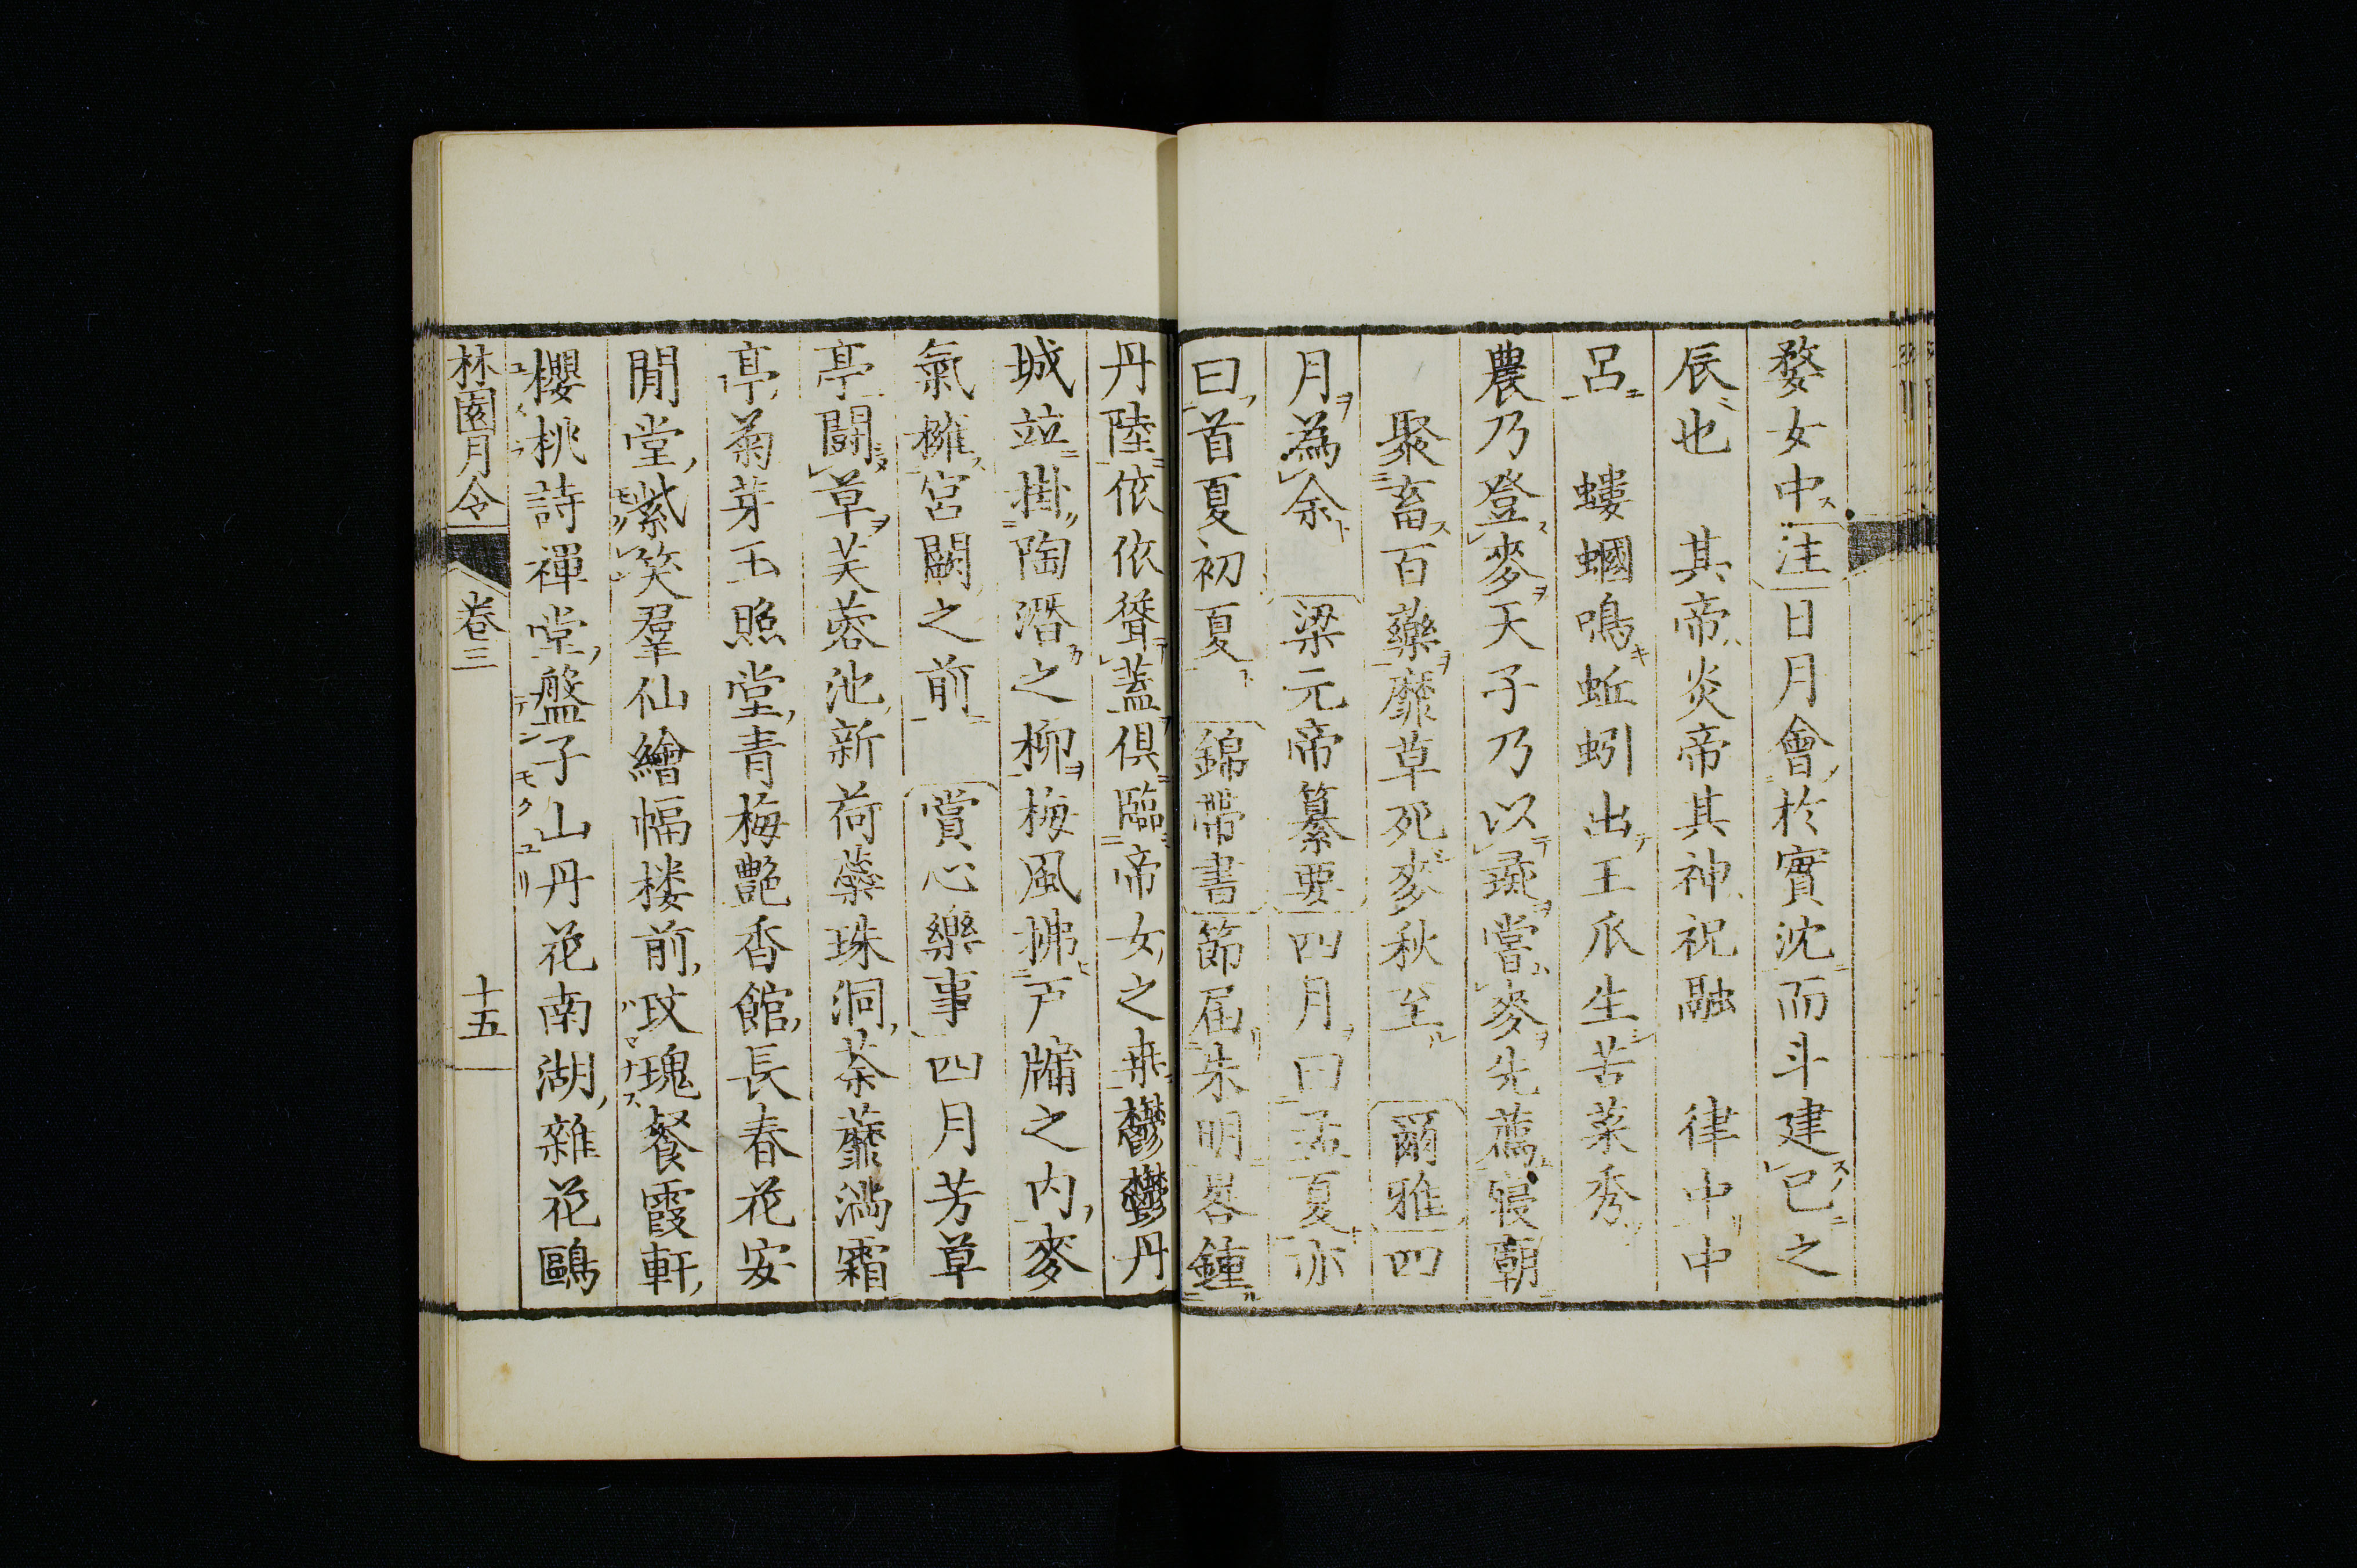 婺女中注日月會於實沈而斗建巳之
辰也　其帝炎帝其神祝融　律中中
呂　螻蟈鳴蚯蚓出王瓜生苦菜秀
農乃登麥天子乃以彘嘗麥先薦寢廟
聚畜百藥靡草死麥秋至　爾雅四
月為余　梁元帝纂要四月曰孟夏亦
曰首夏初夏　錦帶書節届朱明晷鍾
丹陸依依聳蓋俱臨帝女之桒鬱鬱丹
城竝掛陶潛之柳梅風拂戸牖之内麥
氣擁宮闕之前　賞心樂事四月芳草
亭鬪草芙蓉池新荷蘂珠洞荼蘼滿霜
亭菊芽玉照堂青梅艷香館長春花安
閒堂紫笑羣仙繪幅楼前玫瑰餐霞軒
櫻桃詩禪堂盤子山丹花南湖雜花鷗
林園月令　卷三　十五